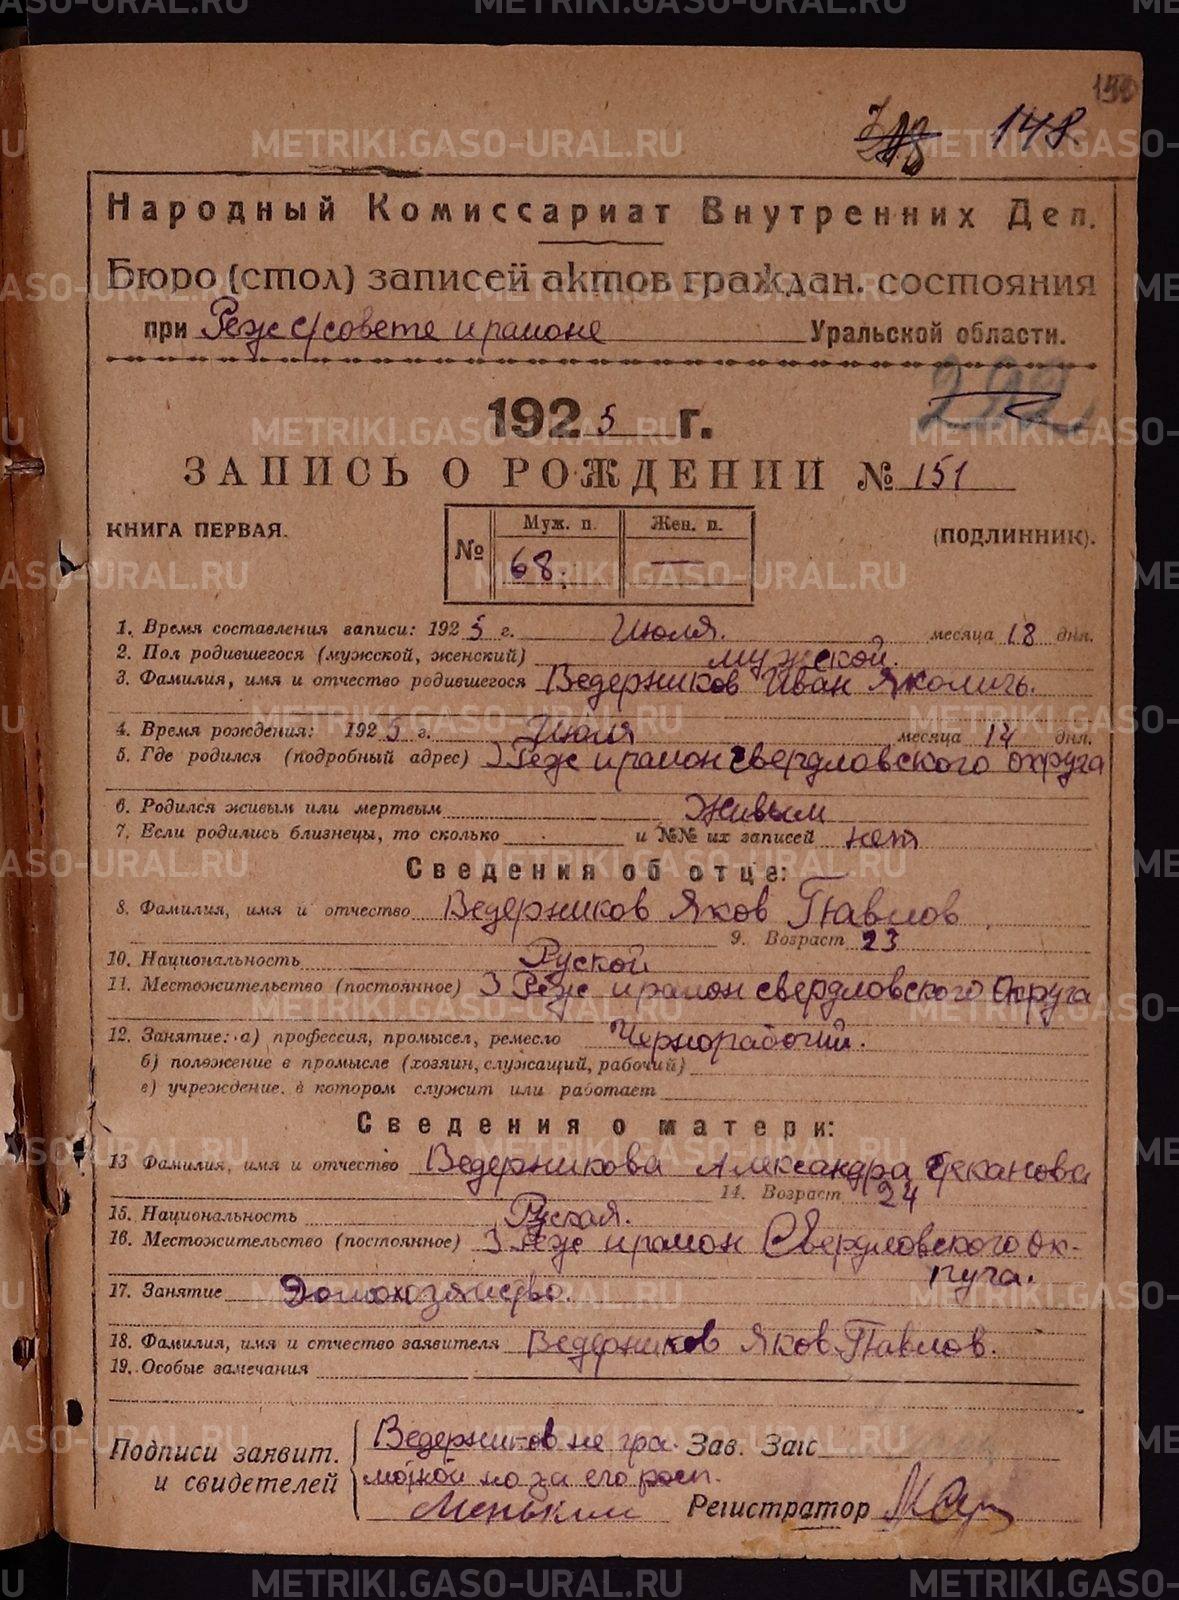 148
Народный Комиссариат Внутренних Дел.
Бюро (стол) записей актов граждан. состояния
при Реж г/совете и районе Уральской области.
292
1925 г.
ЗАПИСЬ О РОЖДЕНИИ № 151
КНИГА ПЕРВАЯ.
(ПОДЛИННИК).
№ Муж. п. Жен. п.
68. —
1. Время составления записи: 1925 г. Июля. месяца 18 дня.
2. Пол родившегося (мужской, женский) мужской.
3. Фамилия, имя и отчество родившегося Ведерников Иван Яколичь.
4. Время рождения: 1925 г. Июля месяца 14 дня.
5. Где родился (подробный адрес) З Реж и район свердловского округа
6. Родился живым или мертвым Живым
7. Если родились близнецы, то сколько и №№ их записей нет
Сведения об отце:
8. Фамилия, имя и отчество Ведерников Яков Павлов
9. Возраст 23
10. Национальность Руской
11. Местожительство (постоянное) З Реж и район свердловского округа
12. Занятие: а) профессия, промысел, ремесло Чернорабочий.
б) положение в промысле (хозяин, служащий, рабочий)
в) учреждение, в котором служит или работает
Сведения о матери:
13 Фамилия, имя и отчество Ведерникова Александра
14. Возраст 24
15. Национальность Руская.
16. Местожительство (постоянное) З Реж и район Свердловского ок-
руга.
17. Занятие Домохозяйство.
18. Фамилия, имя и отчество заявителя Ведерников Яков Павлов.
19. Особые замечания
Подписи заявит. Ведерников не гра- Зав. Загс
и свидетелей мотной но за его росп.
Регистратор
METRIKI.GASO-URAL.RU